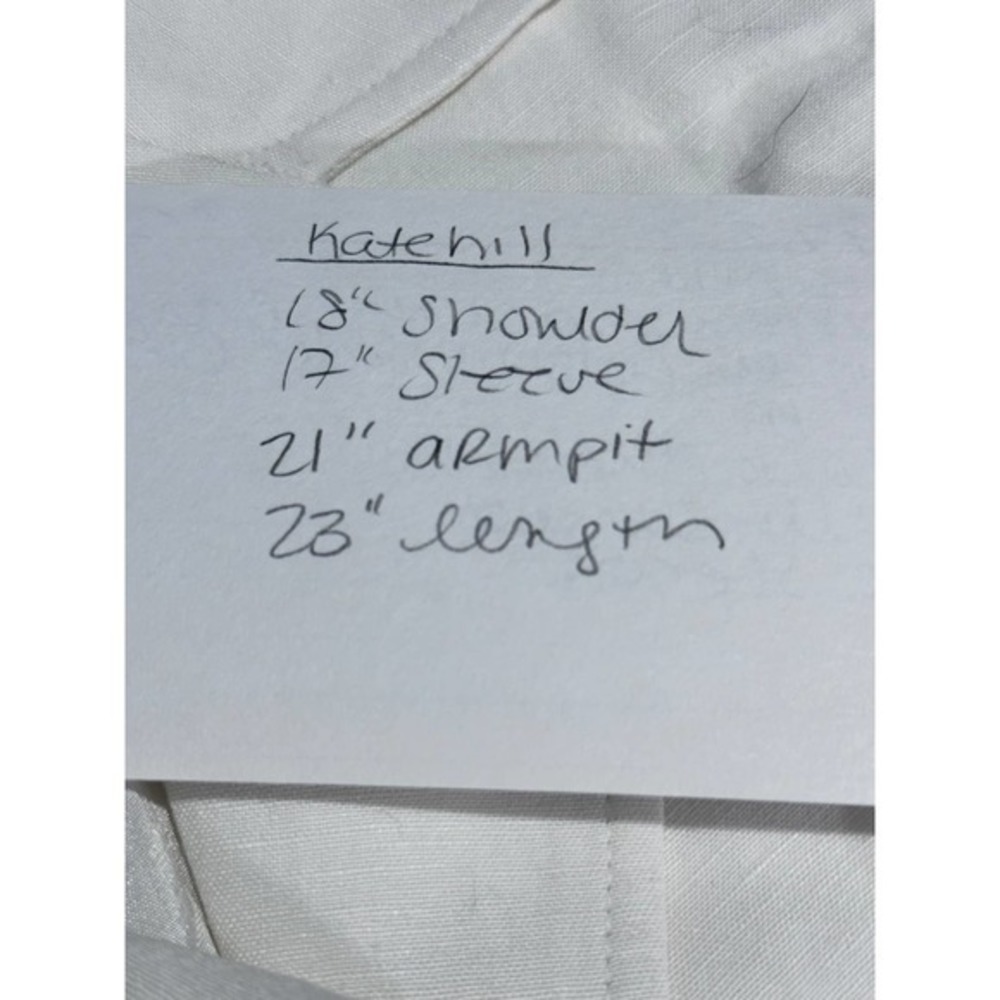 Katehill
18" Shoulder
17" Sleeve
21" aRmpit
23" length